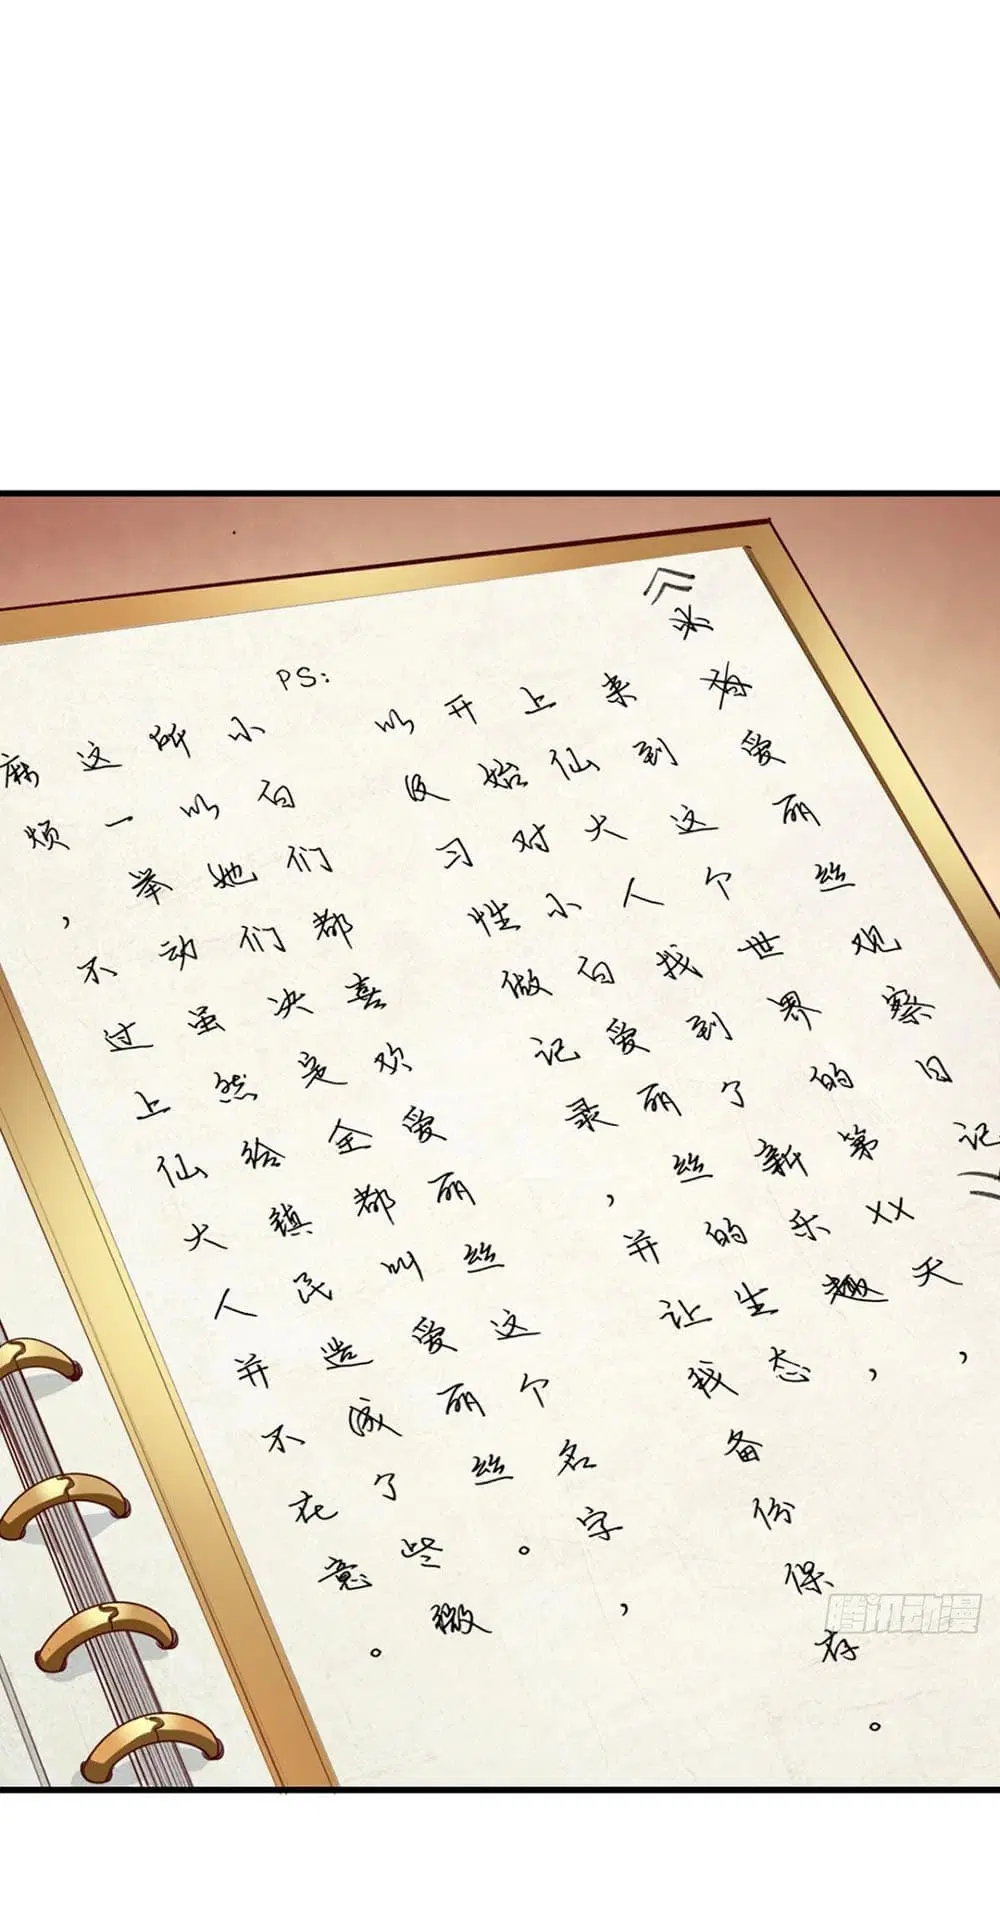 《爱丽丝观察日记》
来到这个世界的第XX天，
上仙大人找到了新的乐趣，
开始对小白爱丽丝的生态
以及习性做记录，并让我备份保存。
PS：
小白们都喜欢爱丽丝这个名字，
所以她们决定全都叫爱丽丝。
这一举动虽然给镇民造成了些微
麻烦，不过上仙大人并不在意。
腾讯动漫